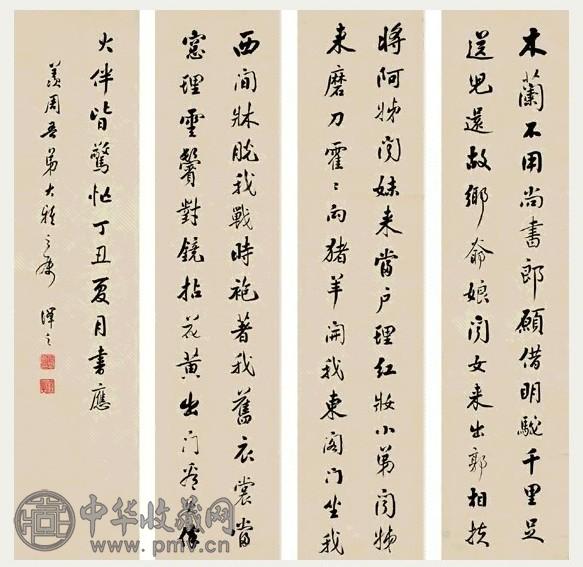 木蘭不用尚書郎願借明駞千里足
送兒還故鄉爺娘聞女来出郭相扶
將阿姊聞妹来當户理紅妝小弟聞姊
来磨刀霍〻向猪羊開我東阁门坐我
西間牀脱我戰時袍著我舊衣裳當
窓理雲鬢對鏡拈花黄出门看火伴
火伴皆驚忙丁丑夏月書應
羨周吾弟大雅之属 之
中华收藏网
www.pmv.cn